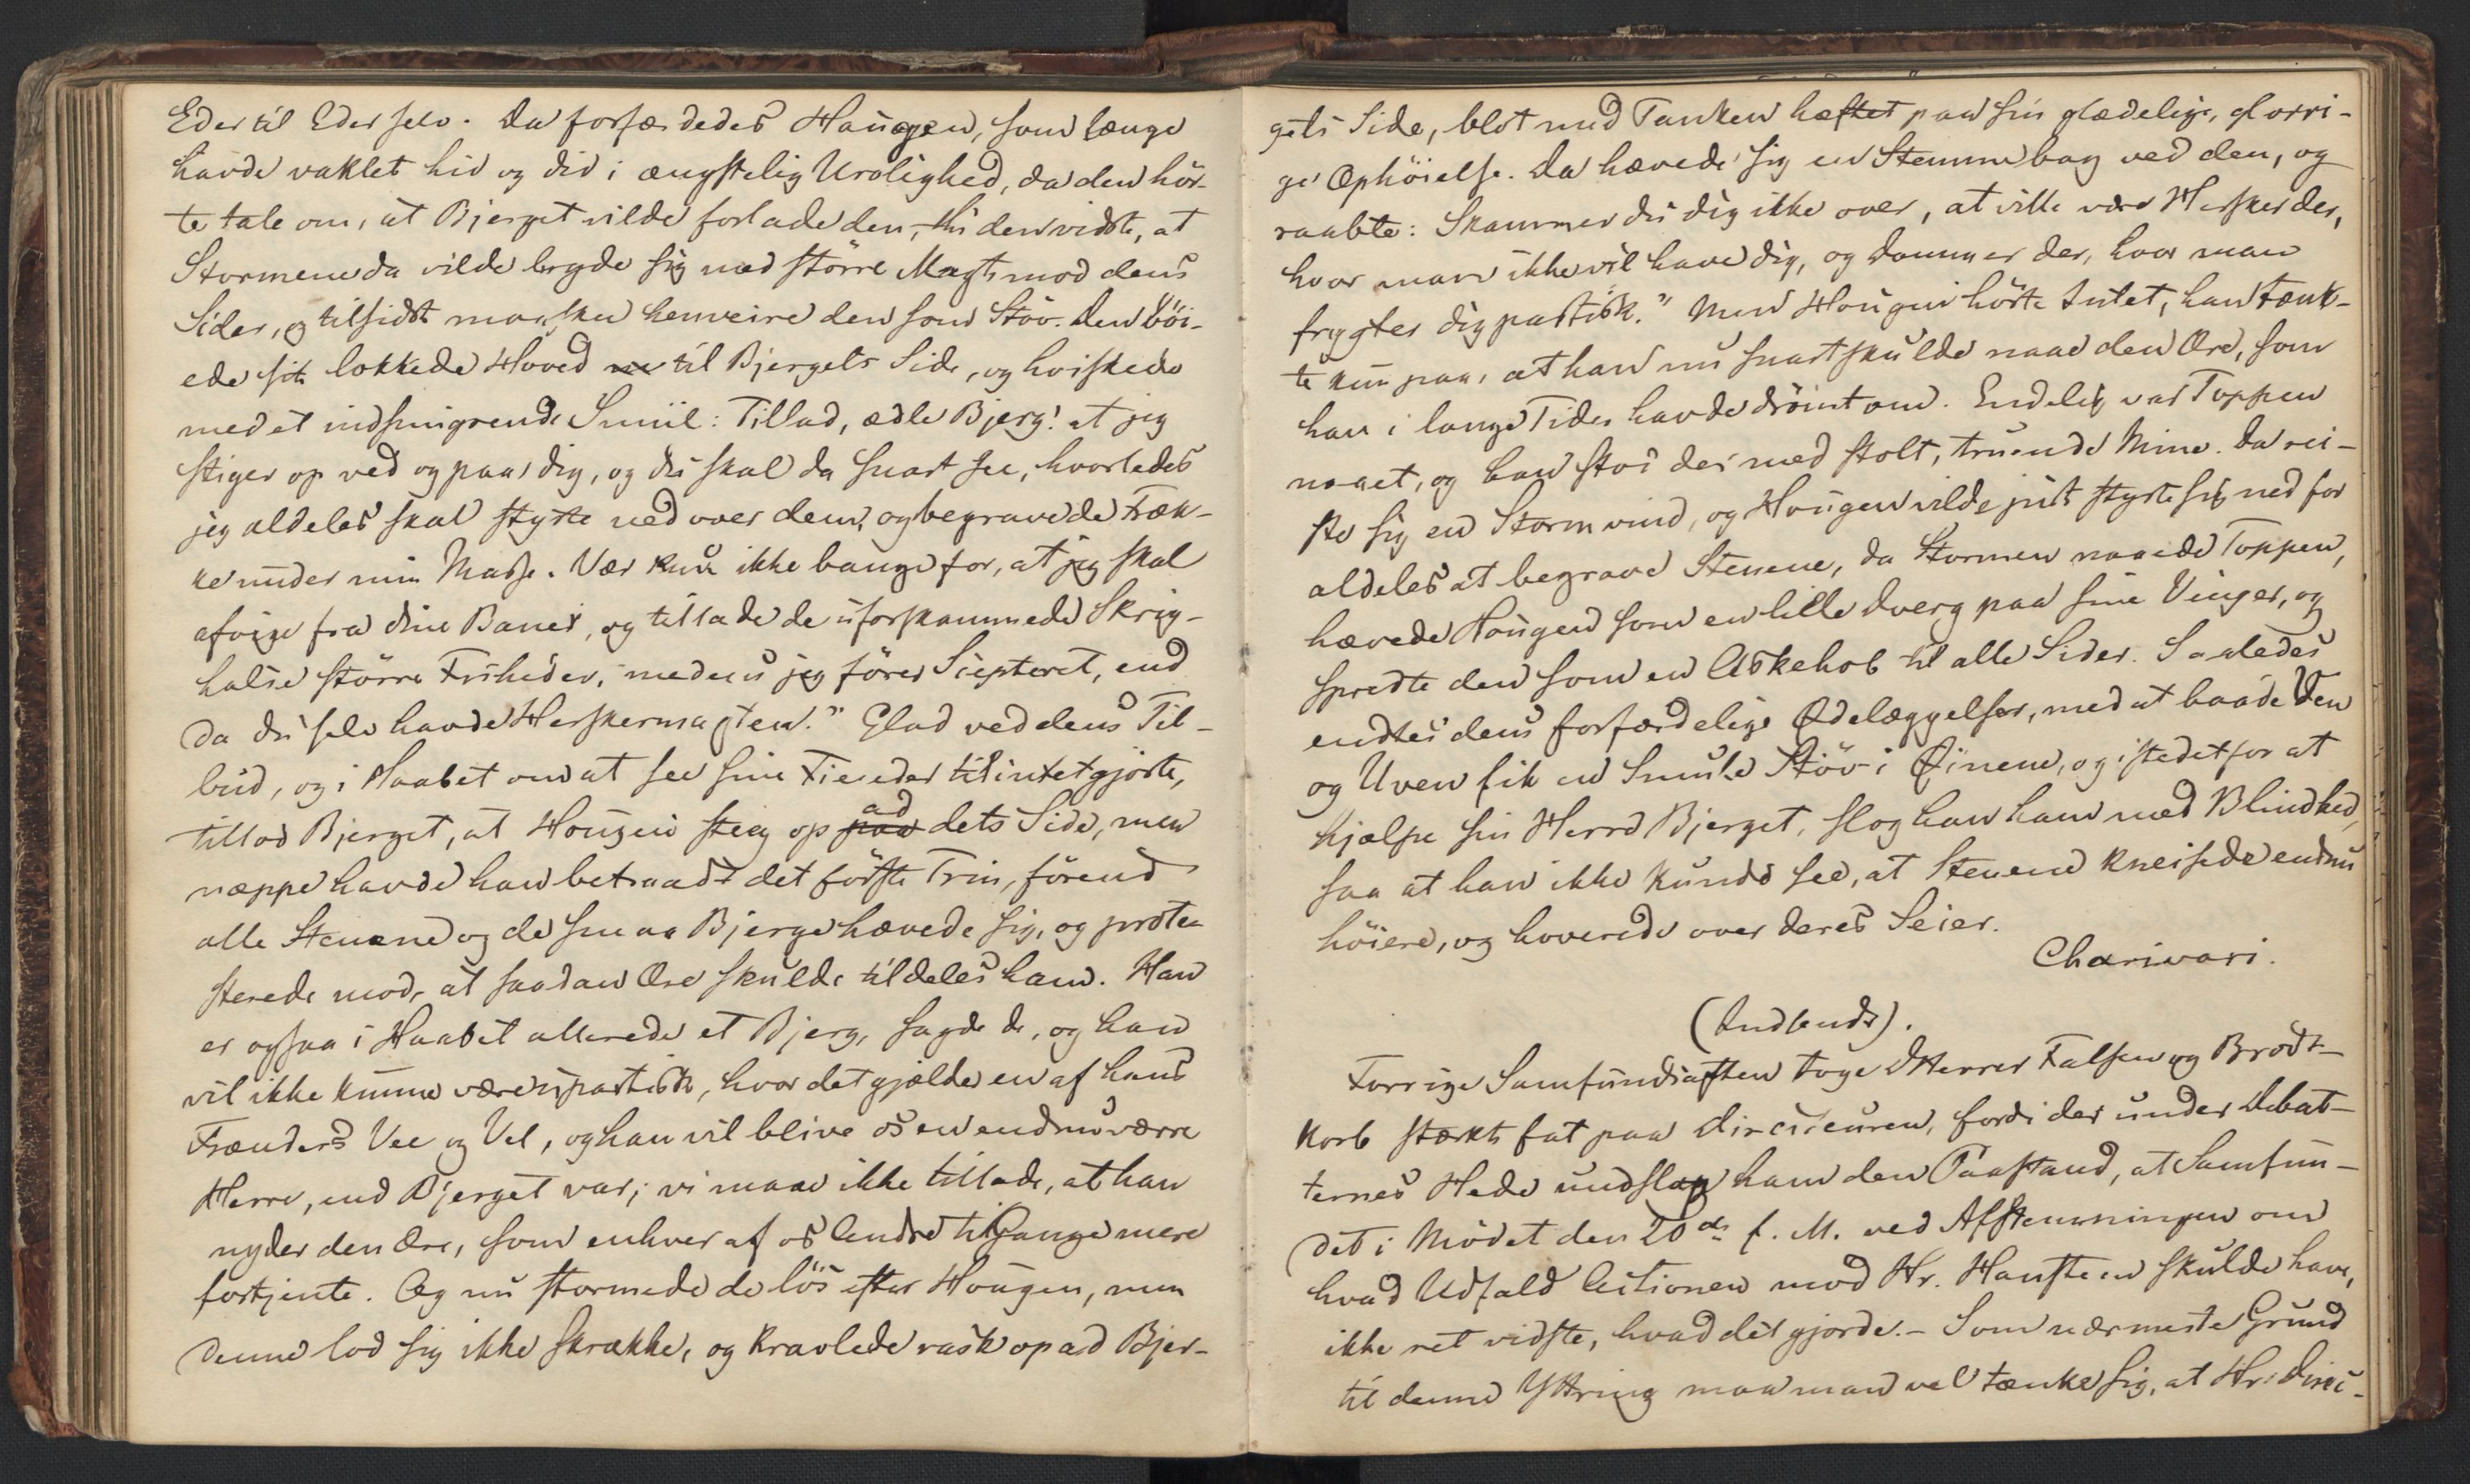 Eder til Eder selv. Da forfærdedes Haugen, som længe
havde vaklet hid og did i ængstelig Urolighed, da den hör-
te tale om, at Bjerget vilde forlade den, thi den vidste, at
Stormene da vilde bryde sig med större Magt mod dens
Sider, og tilsidst maasken henveire den som Stöv. Den böi-
ede sit lokkede Hoved til Bjergets Side, og hviskede
med et indsmigrende Smiil: Tillad, ædle Bjerg! at jeg
stiger op ved og paa dig, og du skal da snart see, hvorledes
jeg aldeles skal styrte ned over dem, og begrave de Fræk-
ke under min Masse. Vær kun ikke bange for, at jeg skal
afvige fra dine Baner, og tillade de uforskammede Skrig-
halse större Friheder, medens jeg förer Scepteret, end
da du selv havde Herskermagten." Glad ved dens Til-
bud, og i Haabet om at see sine Fiender tilintetgjorte,
tillod Bjerget, at Hougen steeg op ad dets Side, men
næppe havde han betraadt det förste Trin, förend
alle Stenene og de smaa Bjerge hævede sig, og prote-
sterede mod, at saadan Ære skulde tildeles ham. Han
er ogsaa i Haabet allerede et Bjerg, sagde de, og han
vil ikke kunne være upartisk, hvor det gjælder en af hans
Frænders Vee og Vel, og han vil blive os en endnu værre
Herre, end Bjerget var; vi maae ikke tillade, at han
nyder den Ære, som enhver af os Andre ti Gange mere
fortjente. Og nu stormede de lös efter Hougen, men
denne lod sig ikke skrække, og kravlede rask op ad Bjer-
gets Side, blot med Tanken hæftet paa sin glædelige, glorri-
ge Ophöielse. Da hævede sig en Stemme bag ved den, og
raabte: Skammer du dig ikke over, at ville være Hersker der,
hvor man ikke vil have dig, og Dommer der, hvor man
frygter dig partisk." Men Hougen hörte Intet, han tænk-
te kun paa, at han nu snart skulde naae den Ære, som
han i lange Tider havde drömt om. Endelig var Toppen
naaet, og han stod der med stolt, truende Mine. Da rei-
ste sig en Stormvind, og Hougen vilde just styrte sig ned for
aldeles at begrave Stenene, da Stormen naaede Toppen,
hævede Hougen som en lille Dverg paa sine Vinger, og
spredte den som en Askehob til alle Sider. Saaledes
endtes dens forfærdelige Ödelæggelser, med at baade Ven
og Uven fik en Smule Stöv i Öinene, og istedetfor at
hjælpe sin Herre Bjerget, slog han ham med Blindhed,
saa at han ikke kunde see, at Stenene kneisede endnu
höiere, og hoverede over deres Seier.
Charivari.
(Indsendt).
Forrige Samfundsaften toge DHerrer Falsen og Brodt-
korb stærkt fat paa Directeuren, fordi der under Debat-
ternes Hede undslap ham den Paastand, at Samfun-
det i Mödet den 20de f. M. ved Afstemningen om
hvad Udfald Actionen mod Hr. Hansteen skulde have,
ikke ret vidste, hvad det gjorde.- Som nærmeste Grund
til denne Yttring maa man vel tænke sig, at Hr. Direc-